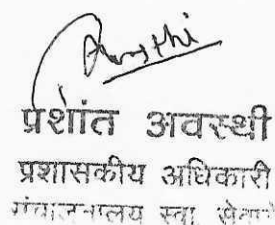 प्रशांत अवस्थी
प्रशासकीय अधिकारी
संचालनालय स्वा. सेवायें